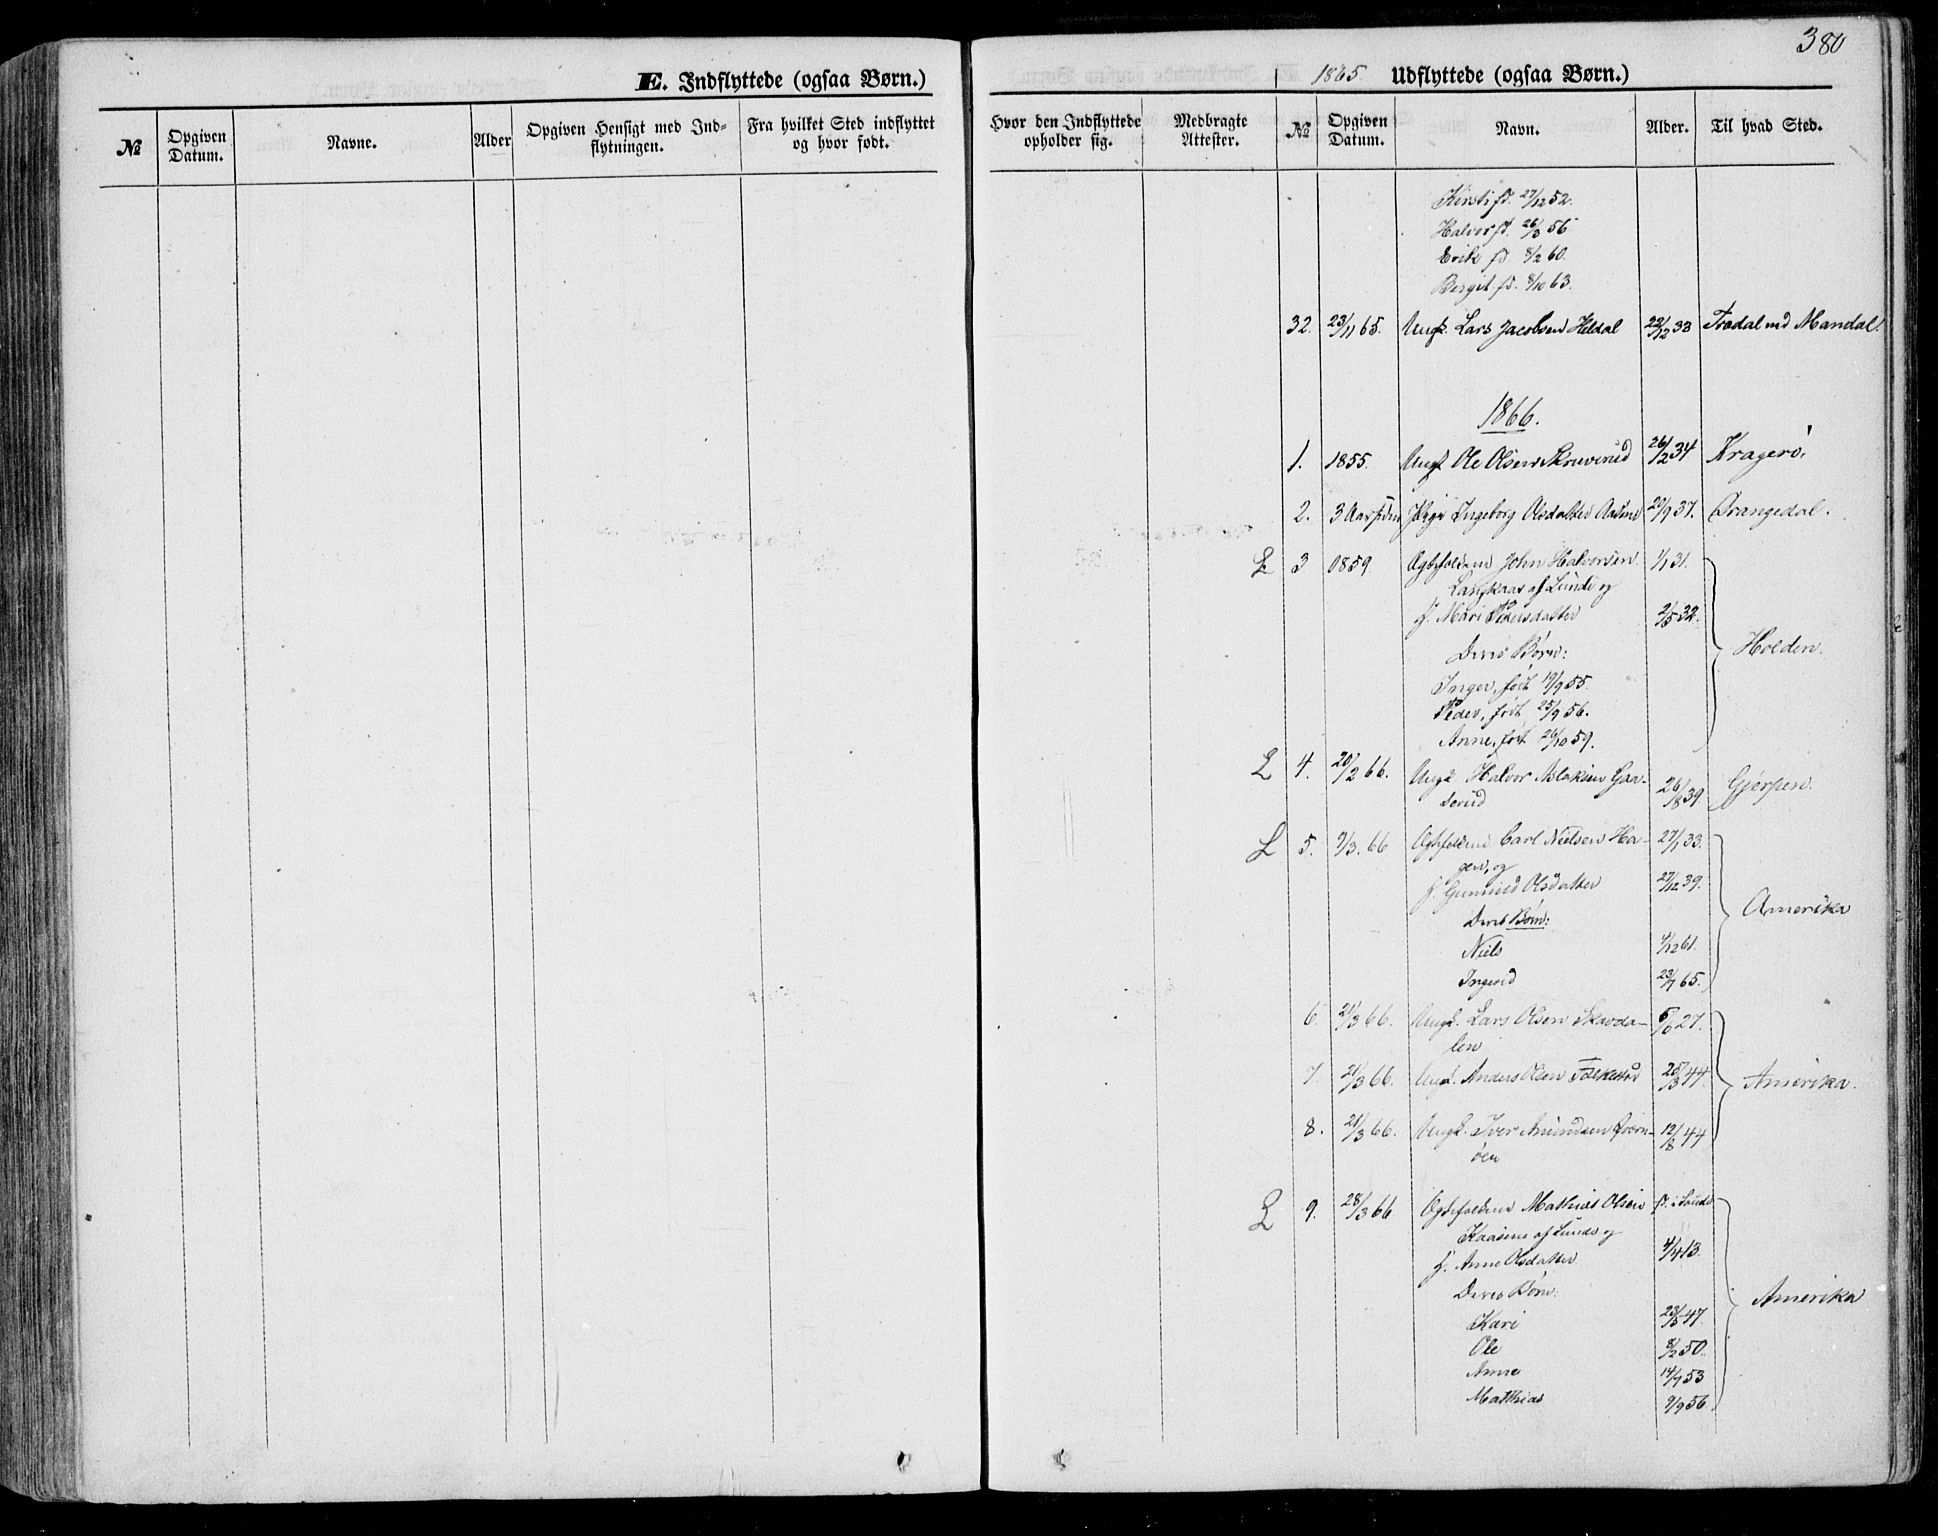 380
E. Indflyttede (ogsaa Børn.)
1865. Udflyttede (ogsaa Børn.)
№ Opgiven Datum. Navne. Alder Opgiven Hensigt med Ind=flytningen. Fra hvilket Sted indflyttet og hvor født.
Hvor den Indflyttede opholder sig. Medbragte Attester. № Opgiven Datum. Navn. Alder. Til hvad Sted.
Kirsti f. 27/12 52.
Halvor f. 26/3 56
Erik f. 8/2 60.
Bergit f. 8/10 63.
32. 23/11 65. Ungk. Lars Jacobsen Heldal 22/12 33 Mandal.
1866.
1. 1855. Ungk. Ole Olsen 26/2 34 Kragerø.
2. 3 Aar siden Pige Ingeborg Olsdatter 20/9 37. Drangedal.
L 3 1859 John Halvorsen 1/1 31.
Langkaas af Lunde og
h. Mari Pedersdatter 2/5 32.
Deres Børn:
Holden.
Inger, født 19/9 55.
Peder, født 25/9 56.
Anne, født 26/10 59.
L 4. 20/2 66. Ungk. Halvor Aslaksen Gaa-
serud 26/8 39 Gjerpen.
L 5. 9/3. 66 Carl Nielsen Ha- 27/1 33.
gen, og
h. Gunnild Olsdatter 27/12 39.
Amerika
Deres Børn:
Niels 4/12 61.
Ingerid 23/7 65.
6. 21/3 66. Ungk. Lars Olsen Skavda- 27.
len
7. 21/3 66. Ungk. Anders Olsen Folkestad 25/3 44. Amerika.
8. 21/3 66. Ungk. Iver Amundsen 12/8 44
øen
L 9. 28/3 66 Mathias Olsen f. i Lunde
Kaasene af Lunde og
h. Anne Olsdatter 4/4 13.
Deres Børn:
Amerika
Kari 23/5 47.
Ole 8/2 50.
Anne 14/7 53
Mathias 9/9 56.